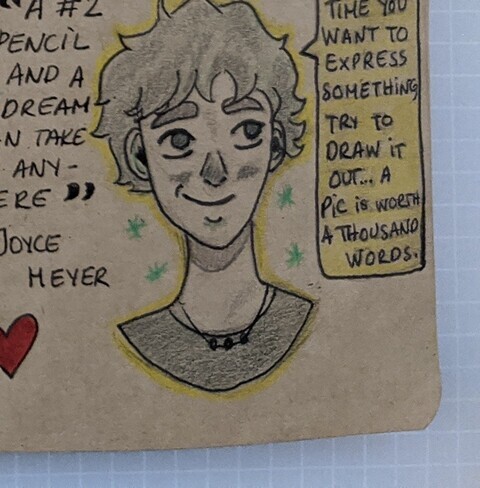 "A #2
PENCIL
AND A
DREAM
N TAKE
ANY-
ERE"
JOYCE
MEYER
TIME YOU
WANT TO
EXPRESS
SOMETHING
TRY TO
DRAW IT
OUT... A
PIC IS WORTH
A THOUSAND
WORDS.